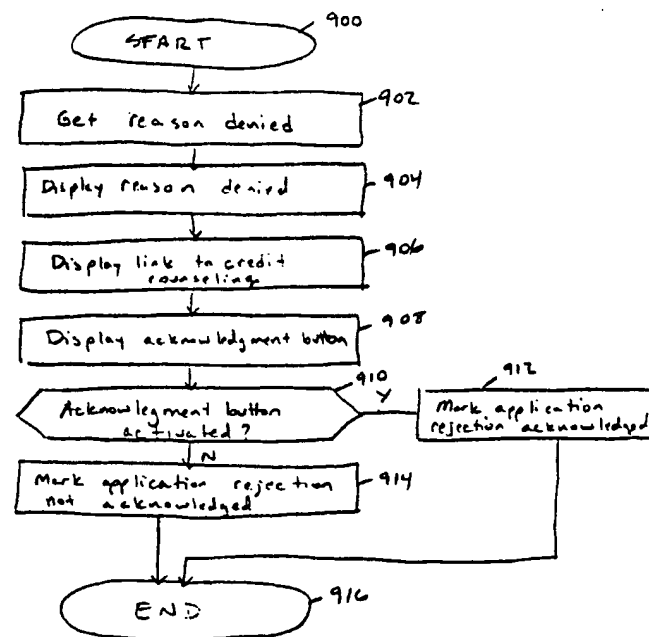 900
START
902
Get reason denied
904
Display reason denied
906
Display link to credit
counseling
908
Display acknowledgment button
910
Acknowlegment button
activated?
Y
912
Mark application
rejection acknowledged
N
914
Mark application rejection
not acknowledged
END
916